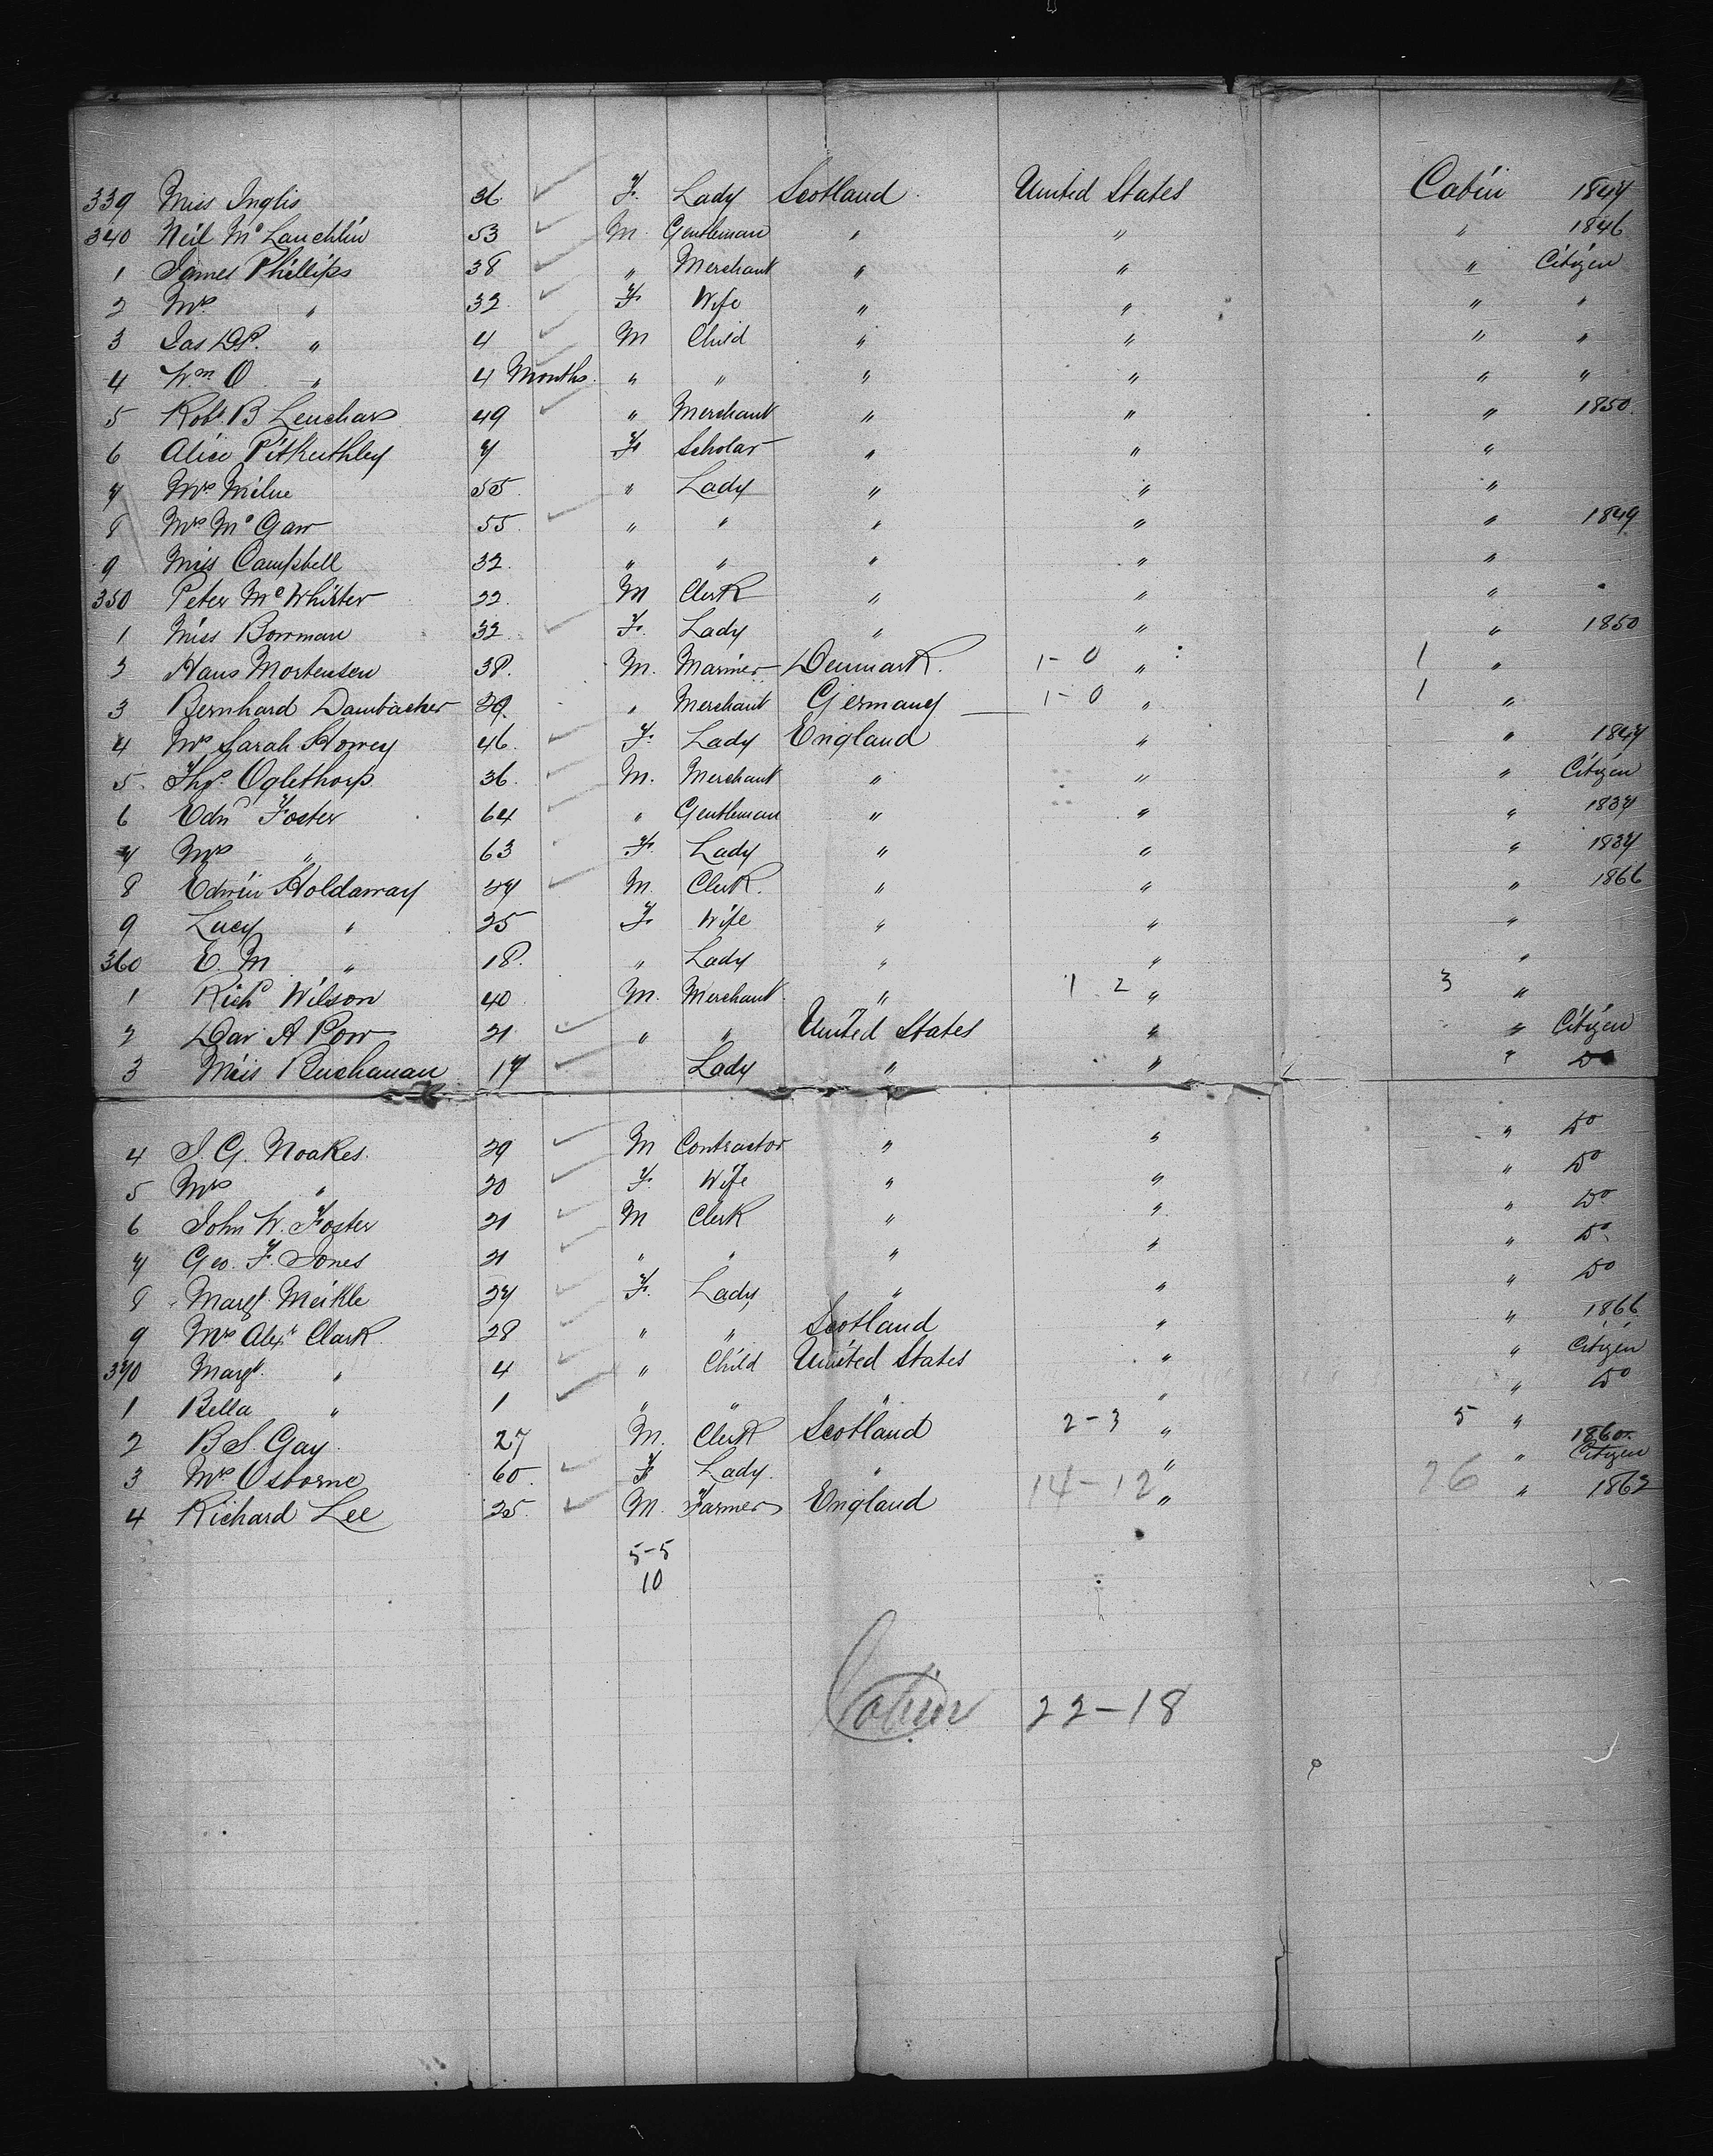 339 Miss Inglis 36 F. Lady Scotland United States Cabin 1847
340 Neil McLauchlin 53 M. Gentleman " " " 1846
1 James Phillips 38 " Merchant " " " Citizen
2 Mrs " 32 F Wife " " " "
3 Jas " 4 M Child " " " "
4 Wm O " 4 Months " " " " " "
5 Robt. B Leuchars 49 " Merchant " " " 1850
6 Alice Pitkeithley 7 F Scholar " " "
7 Mrs Milne 55 " Lady " " "
8 Mrs McGaw 55 " " " " " 1849
9 Miss Campbell 32 " " " " "
350 Peter McWhirter 22 M Clerk " " " "
1 Miss Bowman 32 F. Lady " " " 1850
2 Hans Mortensen 38 M. Mariner Denmark 1-0 " 1 "
3 Bernhard Dambacher 29 " Merchant Germany 1-0 " 1 "
4 Mrs Sarah Howey 46 F. Lady England " " 1847
5 Thos. Oglethorp 36 M. Merchant " " " Citizen
6 Edwd Foster 64 " Gentleman " " " 1837
7 Mrs " 63 F. Lady " " " 1837
8 Edwin Holdaway 27 M. Clerk " " " 1866
9 Lucy " 25 F. Wife " " "
360 E. M " 18 " Lady " " "
1 Richd Wilson 40 M. Merchant " 1 2 " 3 "
2 Dav A Pow 21 " " United States " " Citizen
3 Miss Buchanan 17 Lady " " " Do
4 J. G. Noakes 29 M Contractor " " " Do
5 Mrs " 20 F. Wife " " " Do
6 John W. Foster 21 M Clerk " " " Do
7 Geo. F. Jones 21 " " " " " Do
8 Margt. Meikle 27 F. Lady " " " Do
9 Mrs Alexr Clark 28 " " Scotland " " 1866
370 Margt. " 4 " Child United States " " Citizen
1 Bella " 1 " " " " " Do
2 B S. Gay 27 M. Clerk Scotland 2-3 " 5 "
3 Mrs Osborne 60 F Lady " " " 1860 Citizen
4 Richard Lee 25 M. Farmer England 14-12 " 26 " 1862
5-5
10
Cabin 22-18